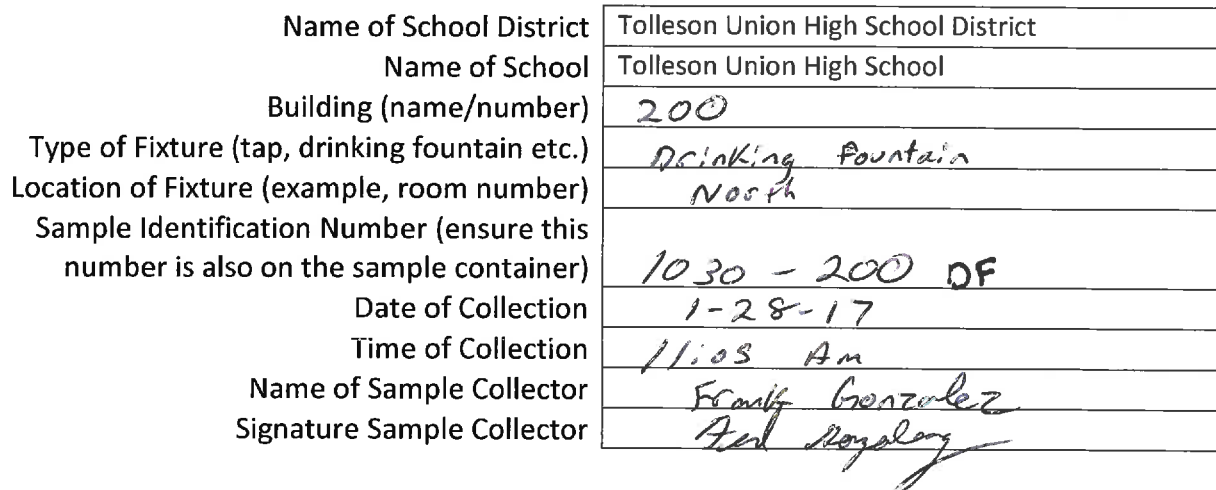 Name of School District Tolleson Union High School District
Name of School Tolleson Union High School
Building (name/number) 200
Type of Fixture (tap, drinking fountain etc.) Drinking Fountain
Location of Fixture (example, room number) North
Sample Identification Number (ensure this
number is also on the sample container) 1030 - 200 DF
Date of Collection 1-28-17
Time of Collection 11:05 Am
Name of Sample Collector Frank Gonzalez
Signature Sample Collector